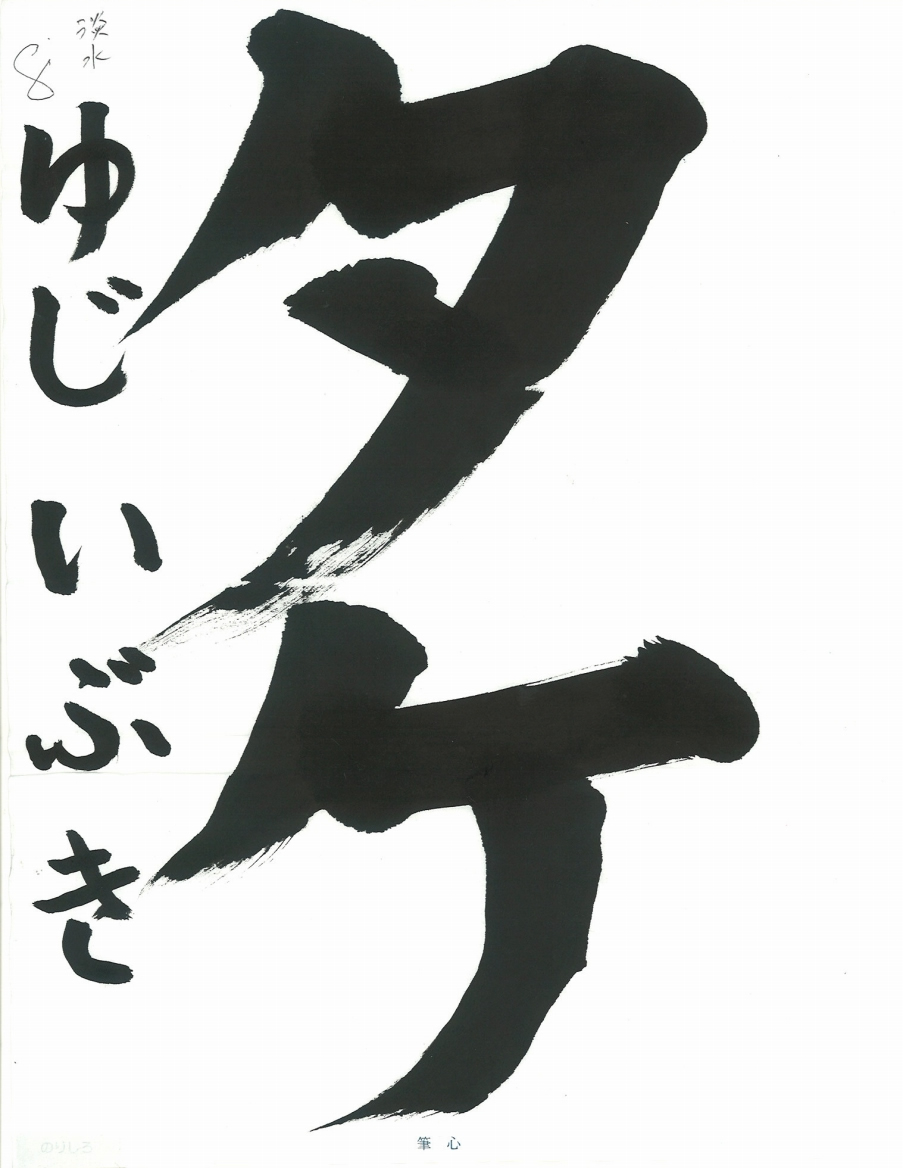 タケ
淡水
8
ゆじ いぶき
筆心
のりしろ